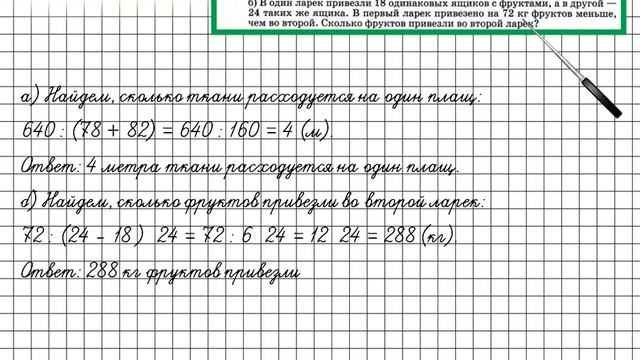 б) В один ларек привезли 18 одинаковых ящиков с фруктами, а в другой —
24 таких же ящика. В первый ларек привезено на 72 кг фруктов меньше,
чем во второй. Сколько фруктов привезли во второй ларек?
а) Найдем, сколько ткани расходуется на один плащ:
640 : (78 + 82) = 640 : 160 = 4 (м).
Ответ: 4 метра ткани расходуется на один плащ.
б) Найдем, сколько фруктов привезли во второй ларек:
72 : (24 - 18) 24 = 72 : 6 24 = 12 24 = 288 (кг).
Ответ: 288 кг фруктов привезли